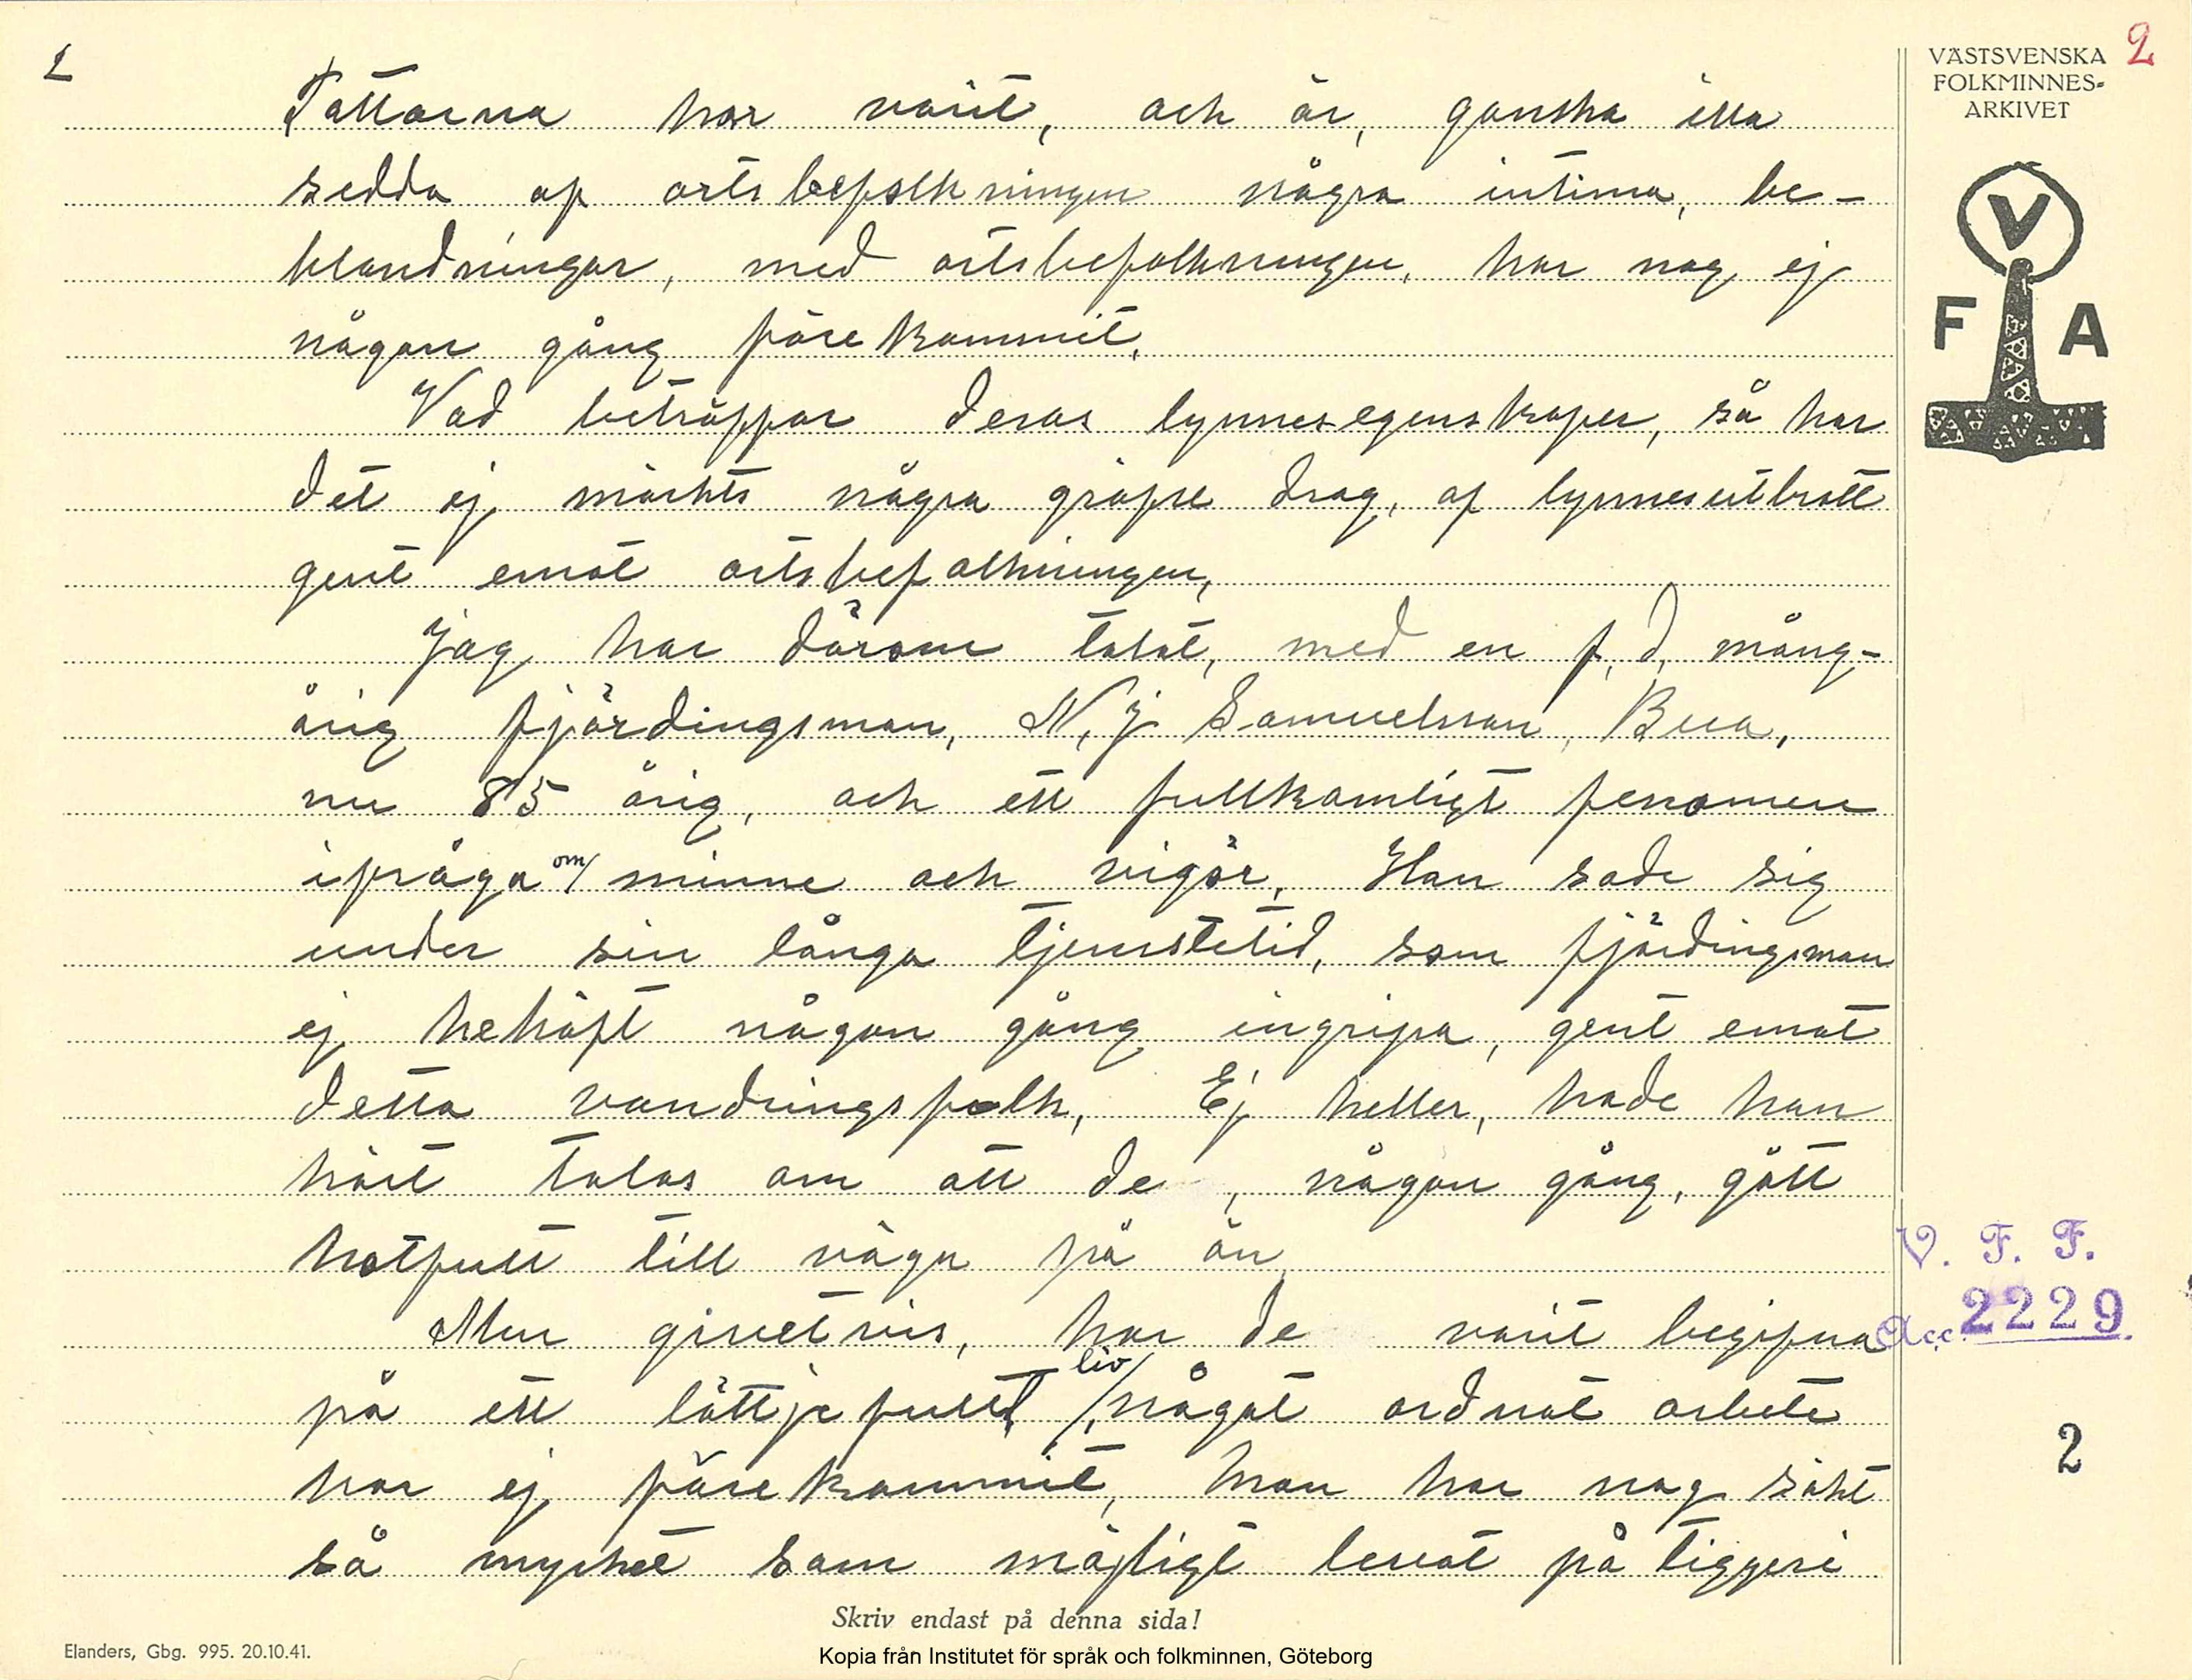 2
Tattarna har varit, och är, ganska illa
sedda af ortsbefolkningen några intima, be-
blandningar, med ortsbefolkningen, har nog ej
någon gång förekommit.
Vad beträffar deras lynnesegenskaper, så har
det ej märkts några gräfre drag, af lynnesutbrott
gent emot ortsbefolkningen,
Jag har därom talat, med en f, d, mång-
årig fjärdingsman, N, J Samuelsson, Bua,
nu 85 årig, och ett fullkomligt fenomen
ifråga om/ minne och vigör, Han sade sig
under sin långa tjenstetid, som fjärdingsman
ej behöft någon gång ingripa, gent emot
detta vandringsfolk, Ej heller, hade han
hört talas om att de, någon gång, gått
hotfull till väga på ön,
Men givetvis, har de varit begifna
på ett lättjefullt liv/, något ordnat arbete
har ej förekommit, man har nog sökt
så mycket som möjligt levat på tiggeri
Skriv endast på denna sida!
Elanders, Gbg. 995. 20.10.41.
Kopia från Institutet för språk och folkminnen, Göteborg
VÄSTSVENSKA
FOLKMINNES-
ARKIVET
2
V
F A
V. F. F.
Acc. 2229
2